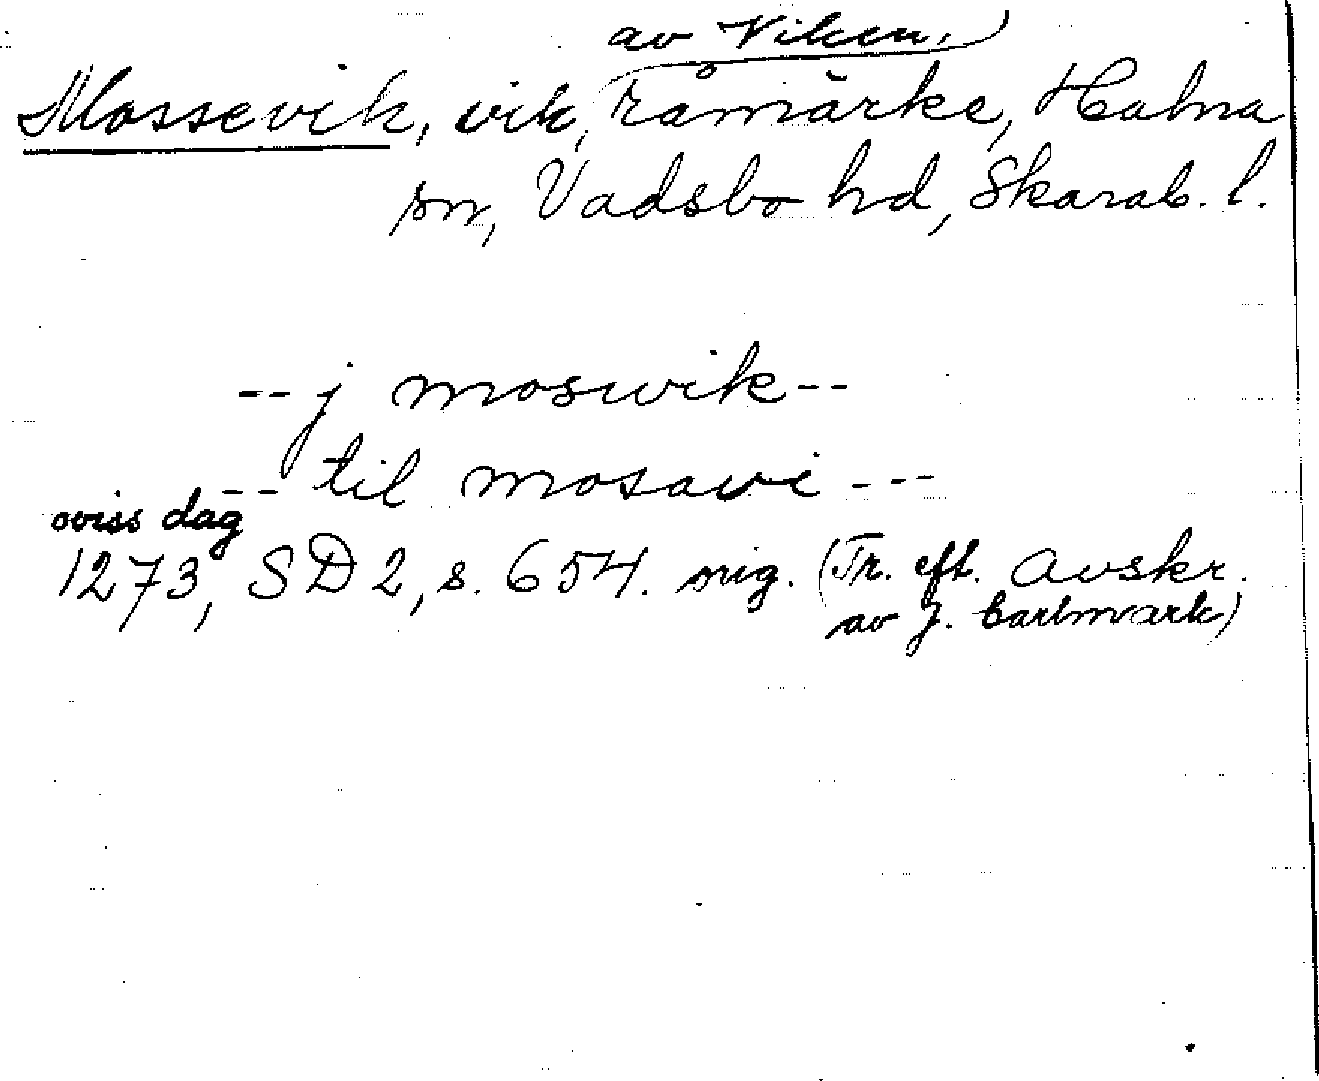 av Viken,
Mossevik, vik, råmärke, Halna
sn, Vadsbo hd, Skarab. l.
-- j moswik --
-- til mosawi ---
oviss dag
1273, SD 2, s. 654. sig. (Tr. eft. avskr.
av J. Carlmark)